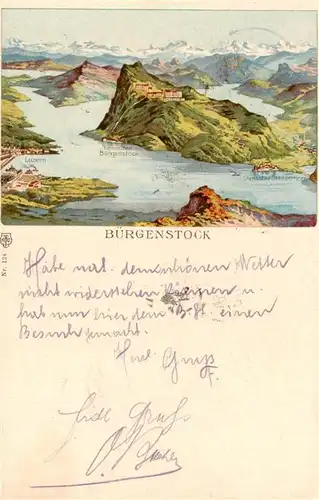 Luzern
Bürgenstock
BÜRGENSTOCK
Nr. 124
Habe mal dem schönen Wetter
nicht widerstehen können u.
hab nun hier dem B.St. einen
Besuch gemacht.
Herzl. Gruss
Gruss